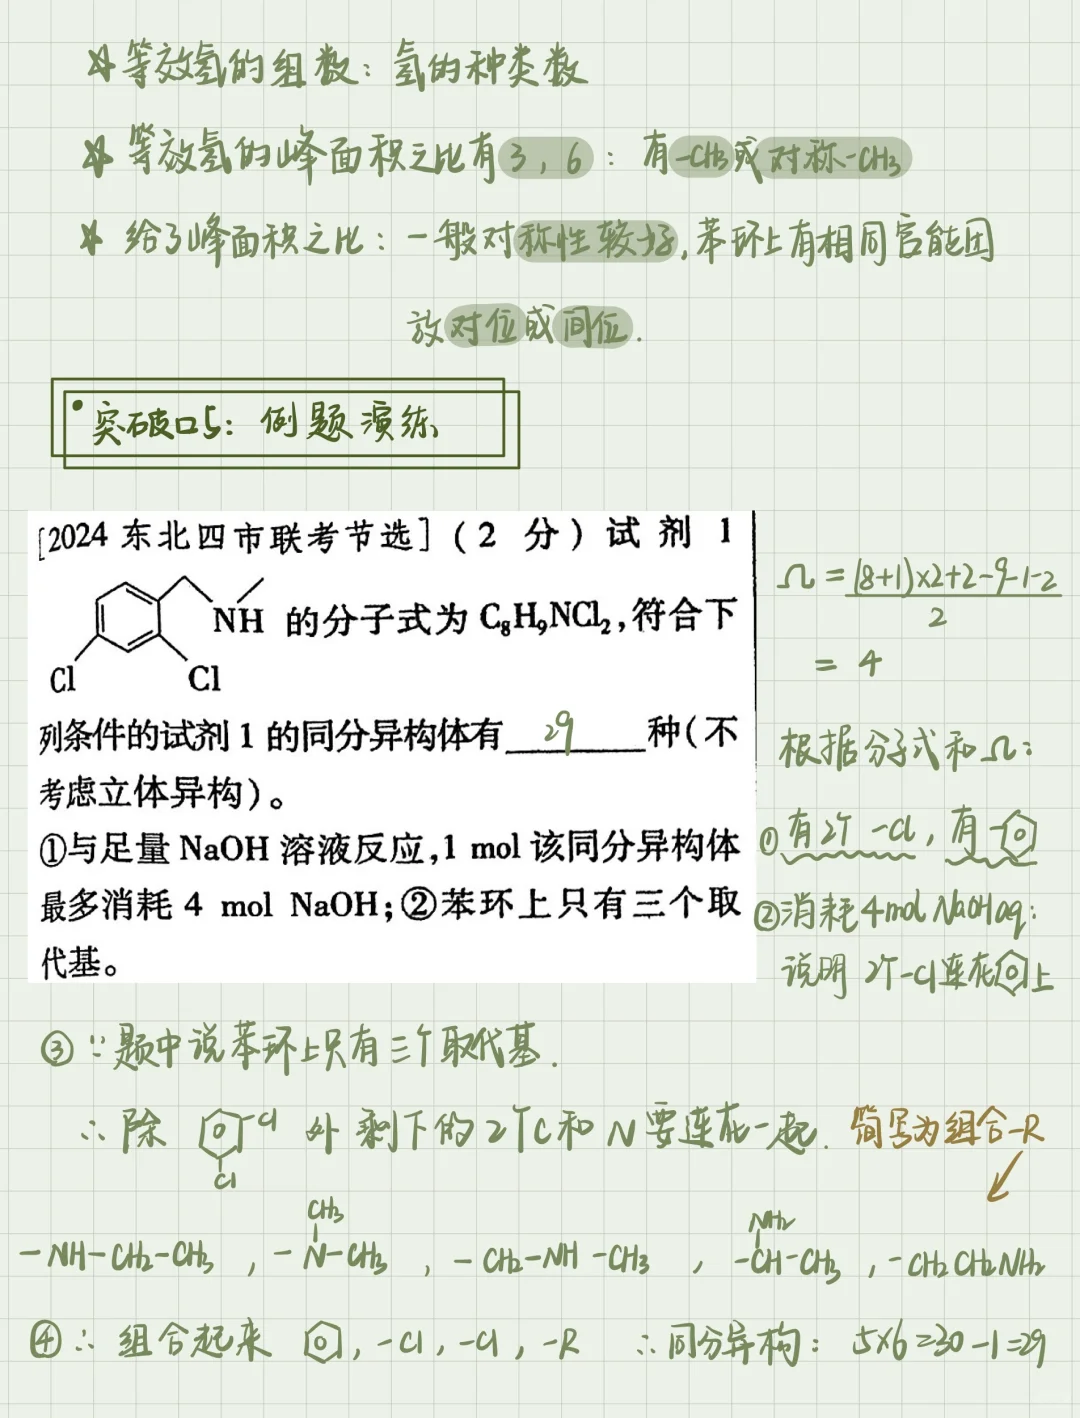 ☆等效氢的组数：氢的种类数
☆等效氢的峰面积之比有3，6：有-CH₃或对称-CH₃
☆给了峰面积之比：一般对称性较好，苯环上有相同官能团
放对位或间位．
突破口5：例题演练
[2024东北四市联考节选]（2分）试剂1
NH的分子式为C₈H₉NCl₂，符合下
Cl Cl
列条件的试剂1的同分异构体有 29 种（不
考虑立体异构）。
①与足量NaOH溶液反应，1 mol该同分异构体
最多消耗4 mol NaOH；②苯环上只有三个取
代基。
Ω=(8+1)×2+2-9-1-2
2
=4
根据分子式和Ω：
①有2个-Cl，有-
②消耗4mol NaOHaq：
说明2个-Cl连在上
③∵题中说苯环上只有三个取代基．
∴除 Cl 外剩下的2个C和N要连在一起．简写为组合-R
Cl
CH₃ NH₂
-NH-CH₂-CH₃，-N-CH₃，-CH₂-NH-CH₃，-CH-CH₃，-CH₂CH₂NH₂
④∴组合起来 ，-Cl，-Cl，-R ∴同分异构：5×6=30-1=29